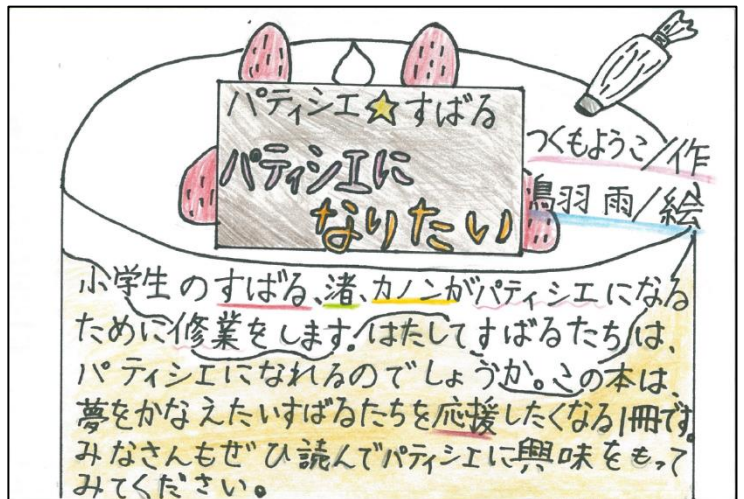 パティシエ☆すばる
パティシエに
なりたい
つくもようこ/作
鳥羽 雨/絵
小学生のすばる、渚、カノンがパティシエになる
ために修業をします。はたしてすばるたちは、
パティシエになれるのでしょうか。この本は、
夢をかなえたいすばるたちを応援したくなる1冊です。
みなさんもぜひ読んでパティシエに興味をもって
みてください。